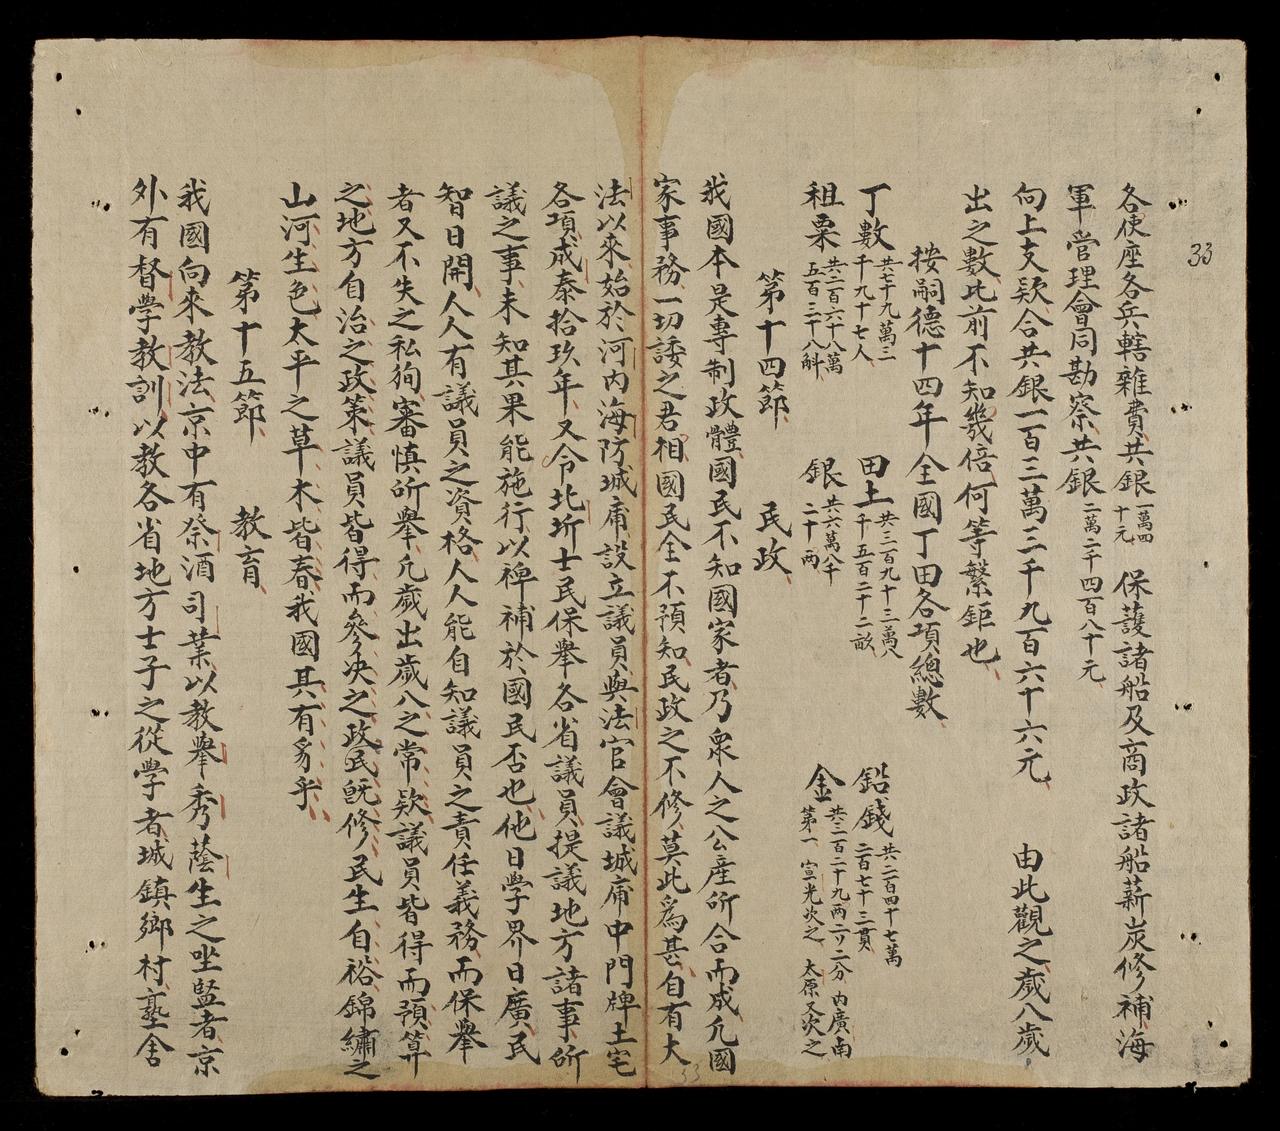 33
各使座各兵轄雜費共銀一萬四十元 保護諸船及商政諸船薪炭修補海
軍管理會同勘察共銀二萬二千四百八十元
向上支欵合共銀一百三萬三千九百六十六元 由此觀之歲入歲
出之數比前不知幾倍何等繁鉅也
按嗣德十四年全國丁田各項總數
丁數共七十九萬三千九十七人 田土共三百九十三萬八千五百二十二畝 鉛錢共二百四十七萬二百七十三貫
租粟共二百六十八萬五百三十八斛 銀共六萬八千二十兩 金共三百二十九兩二分二分 內廣南第一 宣光次之 太原又次之
第十四節 民政
我國本是專制政體國民不知國家者乃衆人之公產所合而成凡國
家事務一切諉之君相國民全不預知民政之不修莫此爲甚自有大
法以來始於河内海防城庯設立議員與法官會議城庯中門牌土宅
各項成泰拾玖年又令北圻士民保舉各省議員提議地方諸事所
議之事未知其果能施行以裨補於國民否也他日學界日廣民
智日開人人有議員之資格人人能自知議員之責任義務而保舉
者又不失之私狥審慎所舉凡歲出歲入之常欵議員皆得而預算
之地方自治之政策議員皆得而參决之政民既修民生自裕錦繡之
山河生色太平之草木皆春我國其有豸乎
第十五節 教育
我國向來教法京中有祭酒司業以教舉秀蔭生之坐監者京
外有督學教訓以教各省地方士子之從學者城鎮鄉村塾舍
33